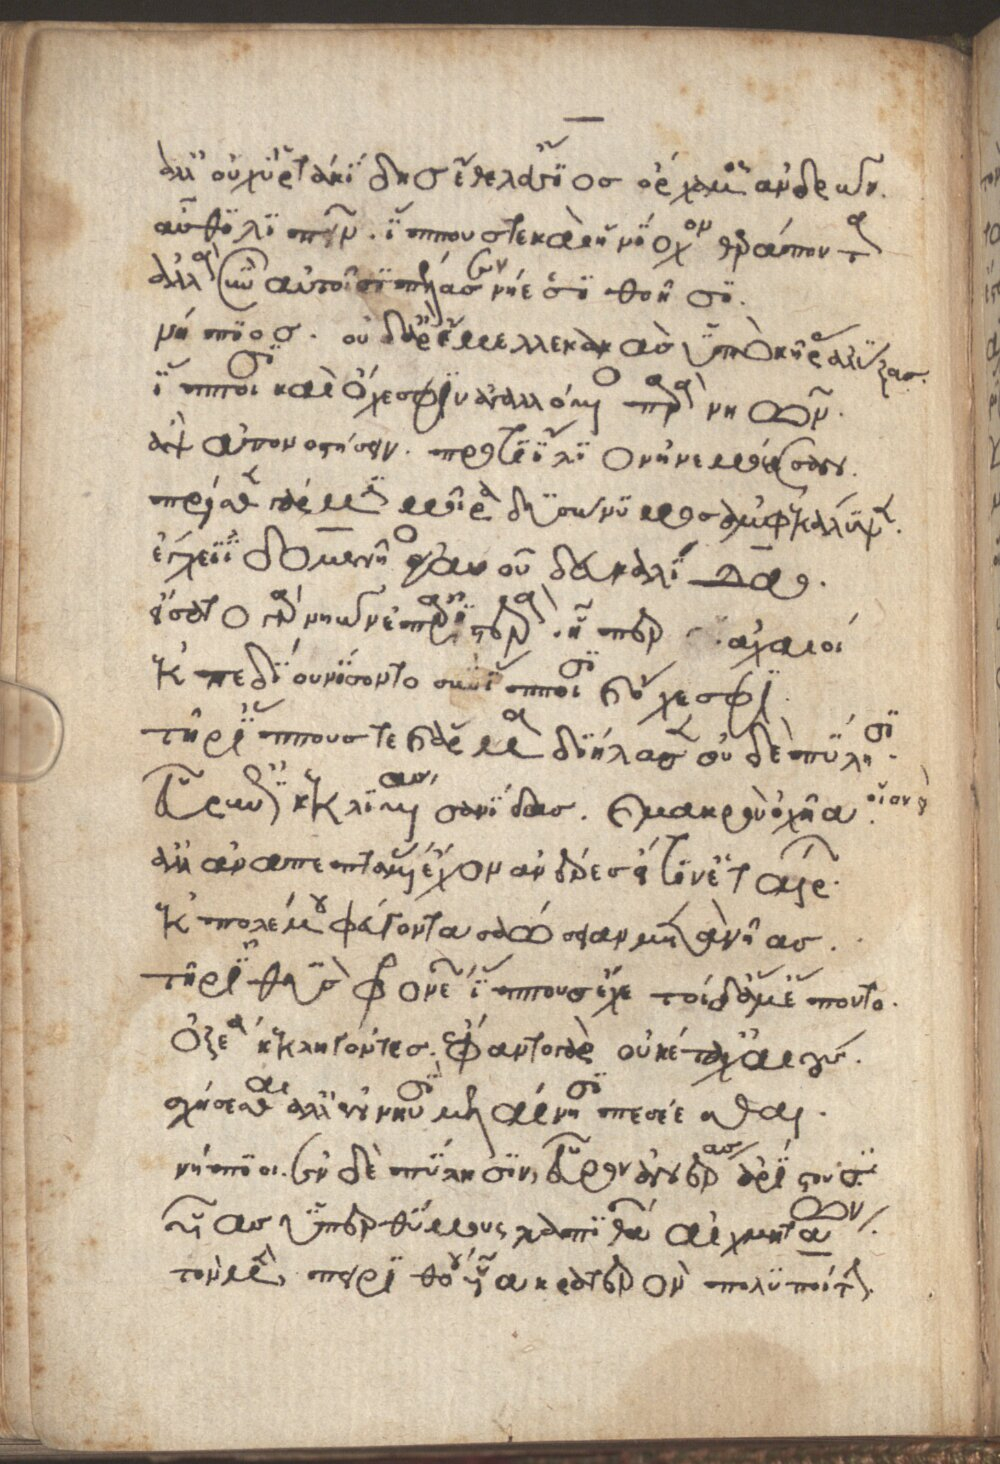 ἀλλ' οὐχ ὑρτακίδης ἔθελ' ἄσιος ὄρχαμος ἀνδρῶν.
αὖθι λιπεῖν ἵππους τε καὶ ἡνίοχον θεράποντα
ἀλλὰ σὺν αὐτοῖσι πέλασεν νήεσσι θοῇσι.
νήπιος. οὐδ' ἄρ' ἔμελλε κακὰς ὑπὸ κῆρας ἀλύξας.
ἵπποισι καὶ ὄχεσφιν ἀγαλλόμενος παρὰ νηῶν.
ἂψ ἀπονοστήσειν. προτὶ ἴλιον ἠνεμόεσσαν.
πρόσθεν γάρ μιν μοῖρα δυσώνυμος ἀμφεκάλυψεν.
ἔγχεϊ ἰδομενῆος ἀγαυοῦ δευκαλίδαο.
εἴσατο γὰρ νηῶν ἐπ' ἀριστερά. τῇ περ ἀχαιοί
ἐκ πεδίου νίσοντο σὺν ἵπποισι καὶ ὄχεσφι.
τῇ ῥ' ἵππους τε καὶ ἅρμα διήλασεν οὐδὲ πύλησι
εὗρ' ἐπικεκλιμένας σανίδας. καὶ μακρὸν ὀχῆα.
ἀλλ' ἀναπεπταμένας ἔχον ἀνδρες εἴ τιν' ἑταίρων
ἐκ πολέμου φεύγοντα σαώσειαν μετὰ νῆας.
τῇ ῥ' ἰθὺς φρονέων ἵππους ἔχε τοὶ δ' ἅμ' ἕποντο.
ὀξέα κεκλήγοντες. ἔφαντο γὰρ οὐκέτ' ἀχαιούς.
σχήσεσθαι ἀλλ' ἐν νηυσὶ μελαίνησι πεσέεσθαι.
νήπιοι. ἐν δὲ πύλησι δύ' ἀνέρας εὗρον ἀρίστους
υἷας ὑπερθύμους λαπιθάων αἰχμητάων
τὸν μὲν πειριθόου υἷα κρατερὸν πολυποίτην.